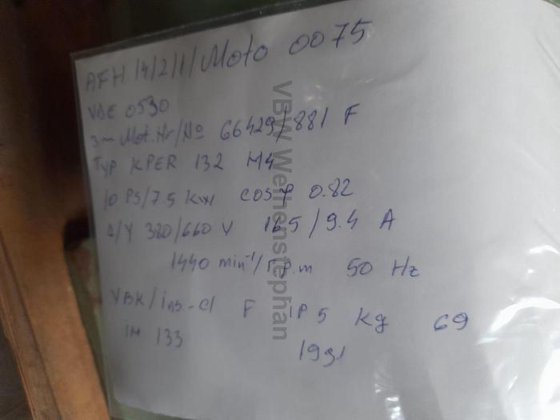 AFH 14/2/1/Moto 0075
VDE 0530
3~ Mot. Nr/No 66429/881 F
Typ KPER 132 M4
10 PS/7.5 KW cos φ 0.82
Δ/Y 380/660 V 16.5/9.4 A
1440 min⁻¹/r.p.m 50 Hz
F IP 5 Kg 69
IM 133 1991
VBW Weihenstephan